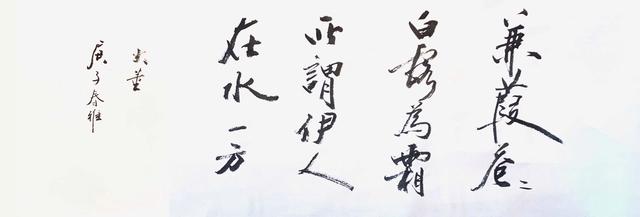 蒹葭苍々
白露為霜
所謂伊人
在水一方
庚子春雅